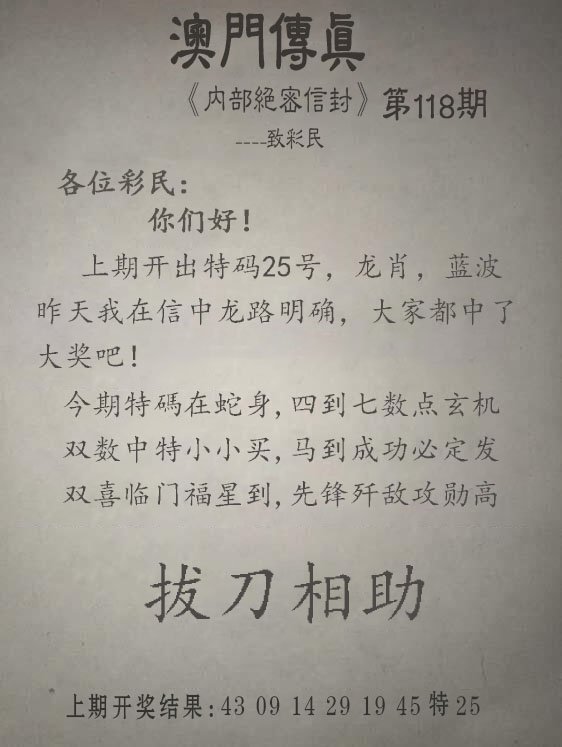 澳門傳眞
《内部絕密信封》第118期
----致彩民
各位彩民：
你们好！
上期开出特码25号，龙肖，蓝波
昨天我在信中龙路明确，大家都中了
大奖吧！
今期特碼在蛇身,四到七数点玄机
双数中特小小买,马到成功必定发
双喜临门福星到,先锋歼敌攻勋高
拔刀相助
上期开奖结果:43 09 14 29 19 45 特 25